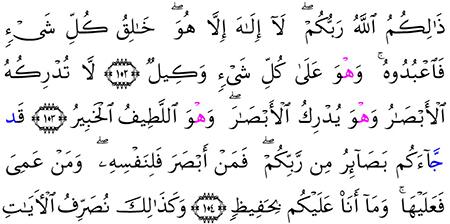 ذَٰلِكُمُ ٱللَّهُ رَبُّكُمْۖ لَآ إِلَٰهَ إِلَّا هُوَۖ خَٰلِقُ كُلِّ شَىْءٖ
فَٱعْبُدُوهُۚ وَهْوَ عَلَىٰ كُلِّ شَىْءٖ وَكِيلٞ ١٠٢ لَّا تُدْرِكُهُ
ٱلْأَبْصَٰرُ وَهْوَ يُدْرِكُ ٱلْأَبْصَٰرَۖ وَهْوَ ٱللَّطِيفُ ٱلْخَبِيرُ ١٠٣ قَد
جَّآءَكُم بَصَآئِرُ مِن رَّبِّكُمْۖ فَمَنْ أَبْصَرَ فَلِنَفْسِهِۦۖ وَمَنْ عَمِىَ
فَعَلَيْهَاۚ وَمَآ أَنَا۠ عَلَيْكُم بِحَفِيظٖ ١٠٤ وَكَذَٰلِكَ نُصَرِّفُ ٱلْأٓيَٰتِ